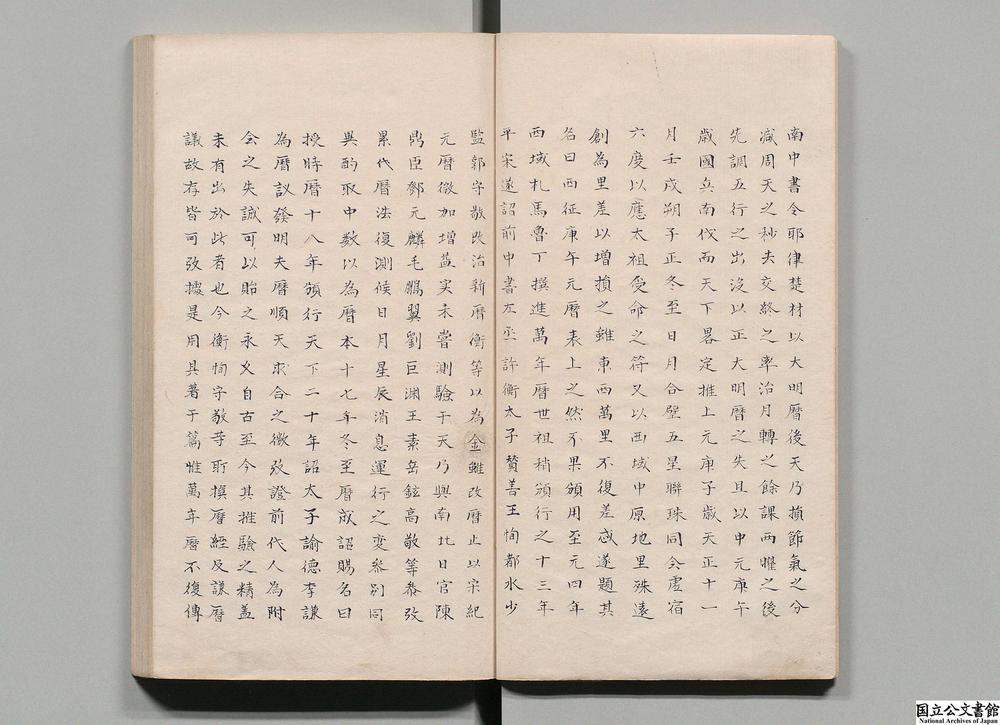 南中書令耶律楚材以大明曆後天乃損節氣之分
减周天之秒去交終之率治月轉之餘課兩曜之後
先調五行之出沒以正大明曆之失且以中元庚午
歲國兵南伐而天下畧定推上元庚子歲天正十一
月壬戌朔子正冬至日月合璧五星聯珠同会虚宿
六度以應太祖受命之符又以西域中原地里殊遠
創為里差以增損之雖東西萬里不復差忒遂題其
名曰西征庚午元曆表上之然不果頒用至元四年
西域札馬魯丁撰進萬年曆世祖稍頒行之十三年
平宋遂詔前中書左丞許衡太子賛善王恂都水少
監郭守敬改治新曆衡等以為金雖改曆止以宋紀
元曆微加增益实未嘗測驗于天乃與南北日官陳
鼎臣鄧元麟毛鵬翼劉巨渊王素岳鉉高敬等叅攷
累代曆法復測候日月星辰消息運行之变叅别同
異酌取中数以為曆本十七年冬至曆成詔賜名曰
授時曆十八年頒行天下二十年詔太子諭德李謙
為曆议發明夫曆順天求合之微攷證前代人為附
会之失誠可以貽之永久自古至今其推驗之精盖
未有出於此者也今衡恂守敬等所撰曆經及謙曆
議故存皆可攷據是用具著于篇惟萬年曆不復傳
国立公文書館
National Archives of Japan